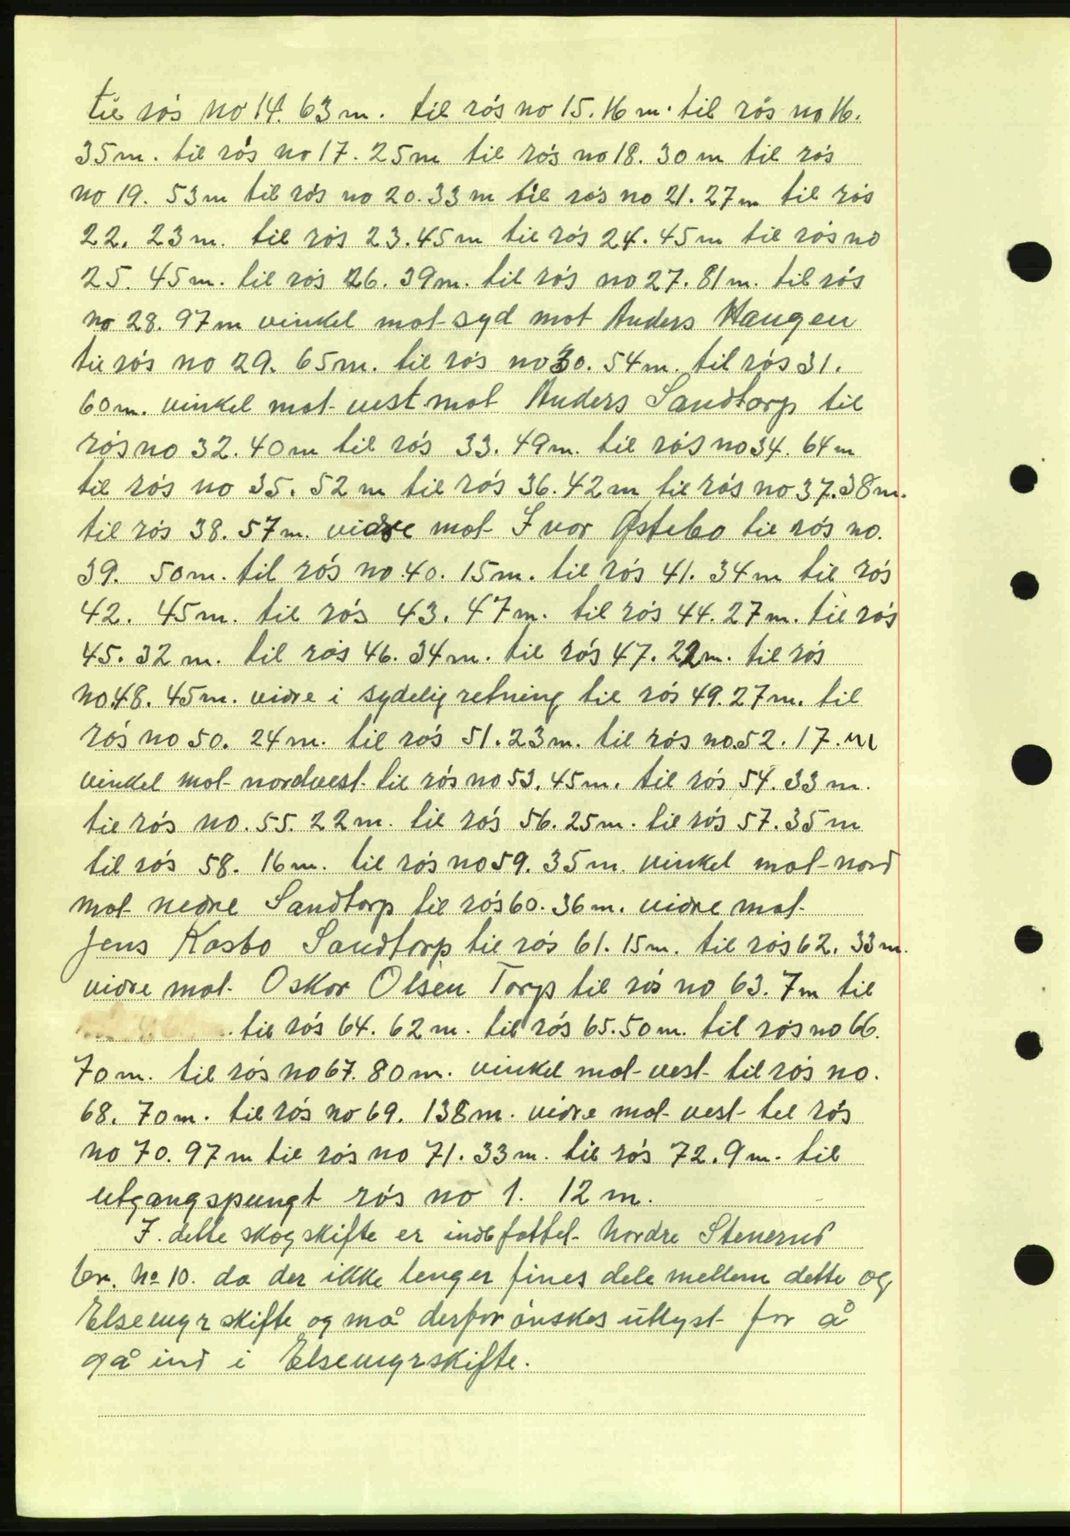 til rós no 14. 63 m. til rós no 15. 16 m. til rós no 16.
35 m. til rós no 17. 25 m til rós no 18. 30 m til rós
no 19. 53 m til rós no 20. 33 m til rós no 21. 27 m til rós
22. 23 m. til rós 23. 45 m til rós 24. 45 m til rós no
25. 45 m. til rós 26. 39 m. til rós no 27. 81 m. til rós
no 28. 97 m vinkel mot syd mot Anders Haugen
til rós no 29. 65 m. til rós no 30. 54 m. til rós 31.
60 m. vinkel mot vest mot Anders Sandtorp til
rós no 32. 40 m til rós 33. 49 m. til rós no 34. 64 m
til rós no 35. 52 m til rós 36. 42 m til rós no 37. 38 m.
til rós 38. 57 m. vidre mot Ivor Østebo til rós no.
39. 50 m. til rós no. 40. 15 m. til rós 41. 34 m til rós
42. 45 m. til rós 43. 47 m. til rós 44. 27 m. til rós
45. 32 m. til rós 46. 34 m. til rós 47. 22 m. til rós
no. 48. 45 m. vidre i sydelig retning til rós 49. 27 m. til
rós no 50. 24 m. til rós 51. 23 m. til rós no. 52. 17. m
vinkel mot nordvest til rós no 53. 45 m. til rós 54. 33 m.
til rós no. 55. 22 m. til rós 56. 25 m. til rós 57. 35 m
til rós 58. 16 m. til rós no 59. 35 m. vinkel mot nord
mot nedre Sandtorp til rós 60. 36 m. vidre mot
Jens Kasbo Sandtorp til rós 61. 15 m. til rós 62. 33 m.
vidre mot Oskar Olsen Torp til rós no 63. 7 m til
til rós 64. 62 m. til rós 65. 50 m. til rós no 66.
70 m. til rós no 67. 80 m. vinkel mot vest til rós no.
68. 70 m. til rós no 69. 138 m. vidre mot vest til rós
no 70. 97 m til rós no 71. 33 m. til rós 72. 9 m. til
utgangspungt rós no 1. 12 m.
I dette skogskifte er indbfattet Nordre Stenerud
br. No 10. da der ikke lenger fines dele mellem dette og
Elsemyr skifte og må derfor ønskes utlyst for å
gå ind i Elsemyrskifte.